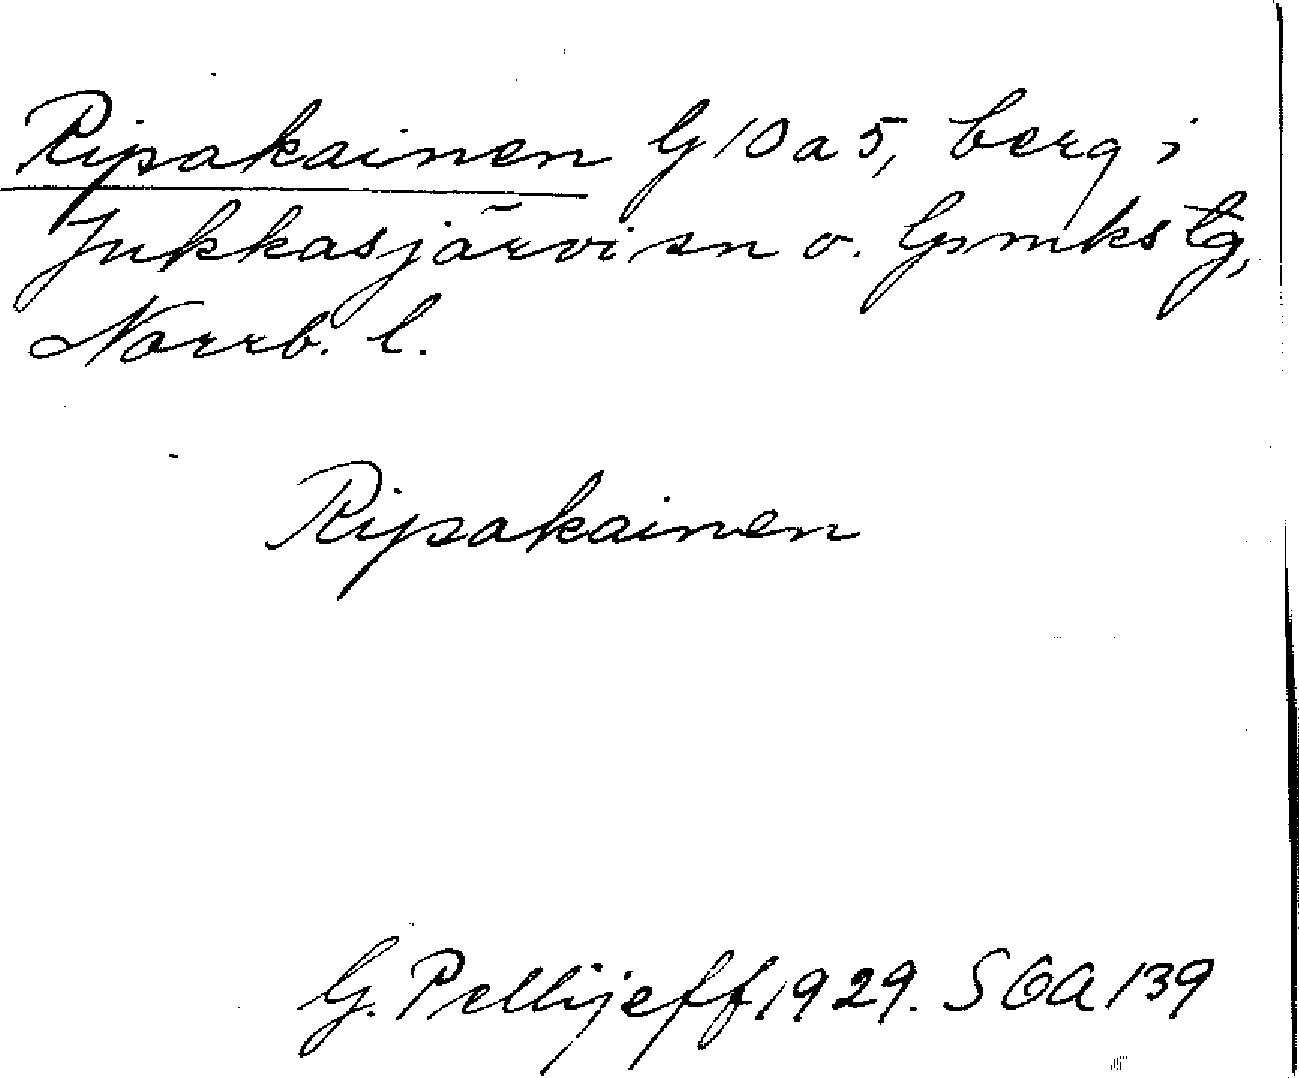 Ripakainen G10a5, berg i
Jukkasjärvi sn o. Gmks tg,
Norrb. l.
Ripakainen
G. Pellijeff 1929. SOA 139